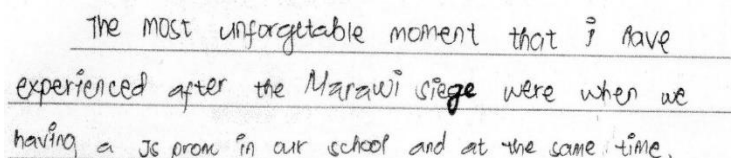 The most unforgettable moment that i have
experienced after the Marawi siege were when we
having a JS prom in our school and at the same time,